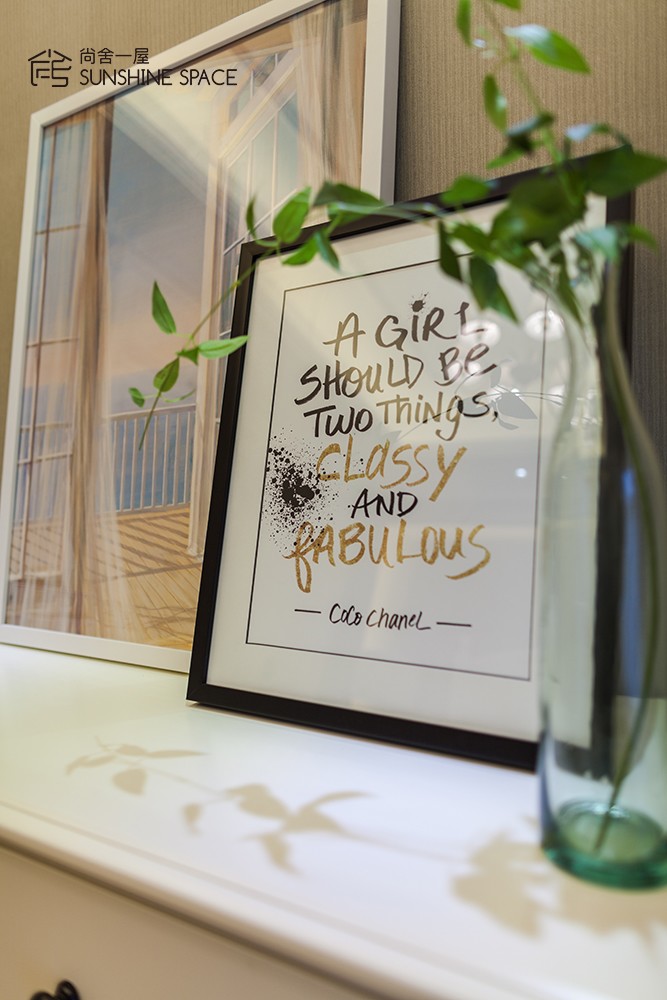 尚舍一屋
SUNSHINE SPACE
A GIRL
SHOULD BE
TWO THINGS,
CLASSY
AND
FABULOUS
— COCO CHANEL —